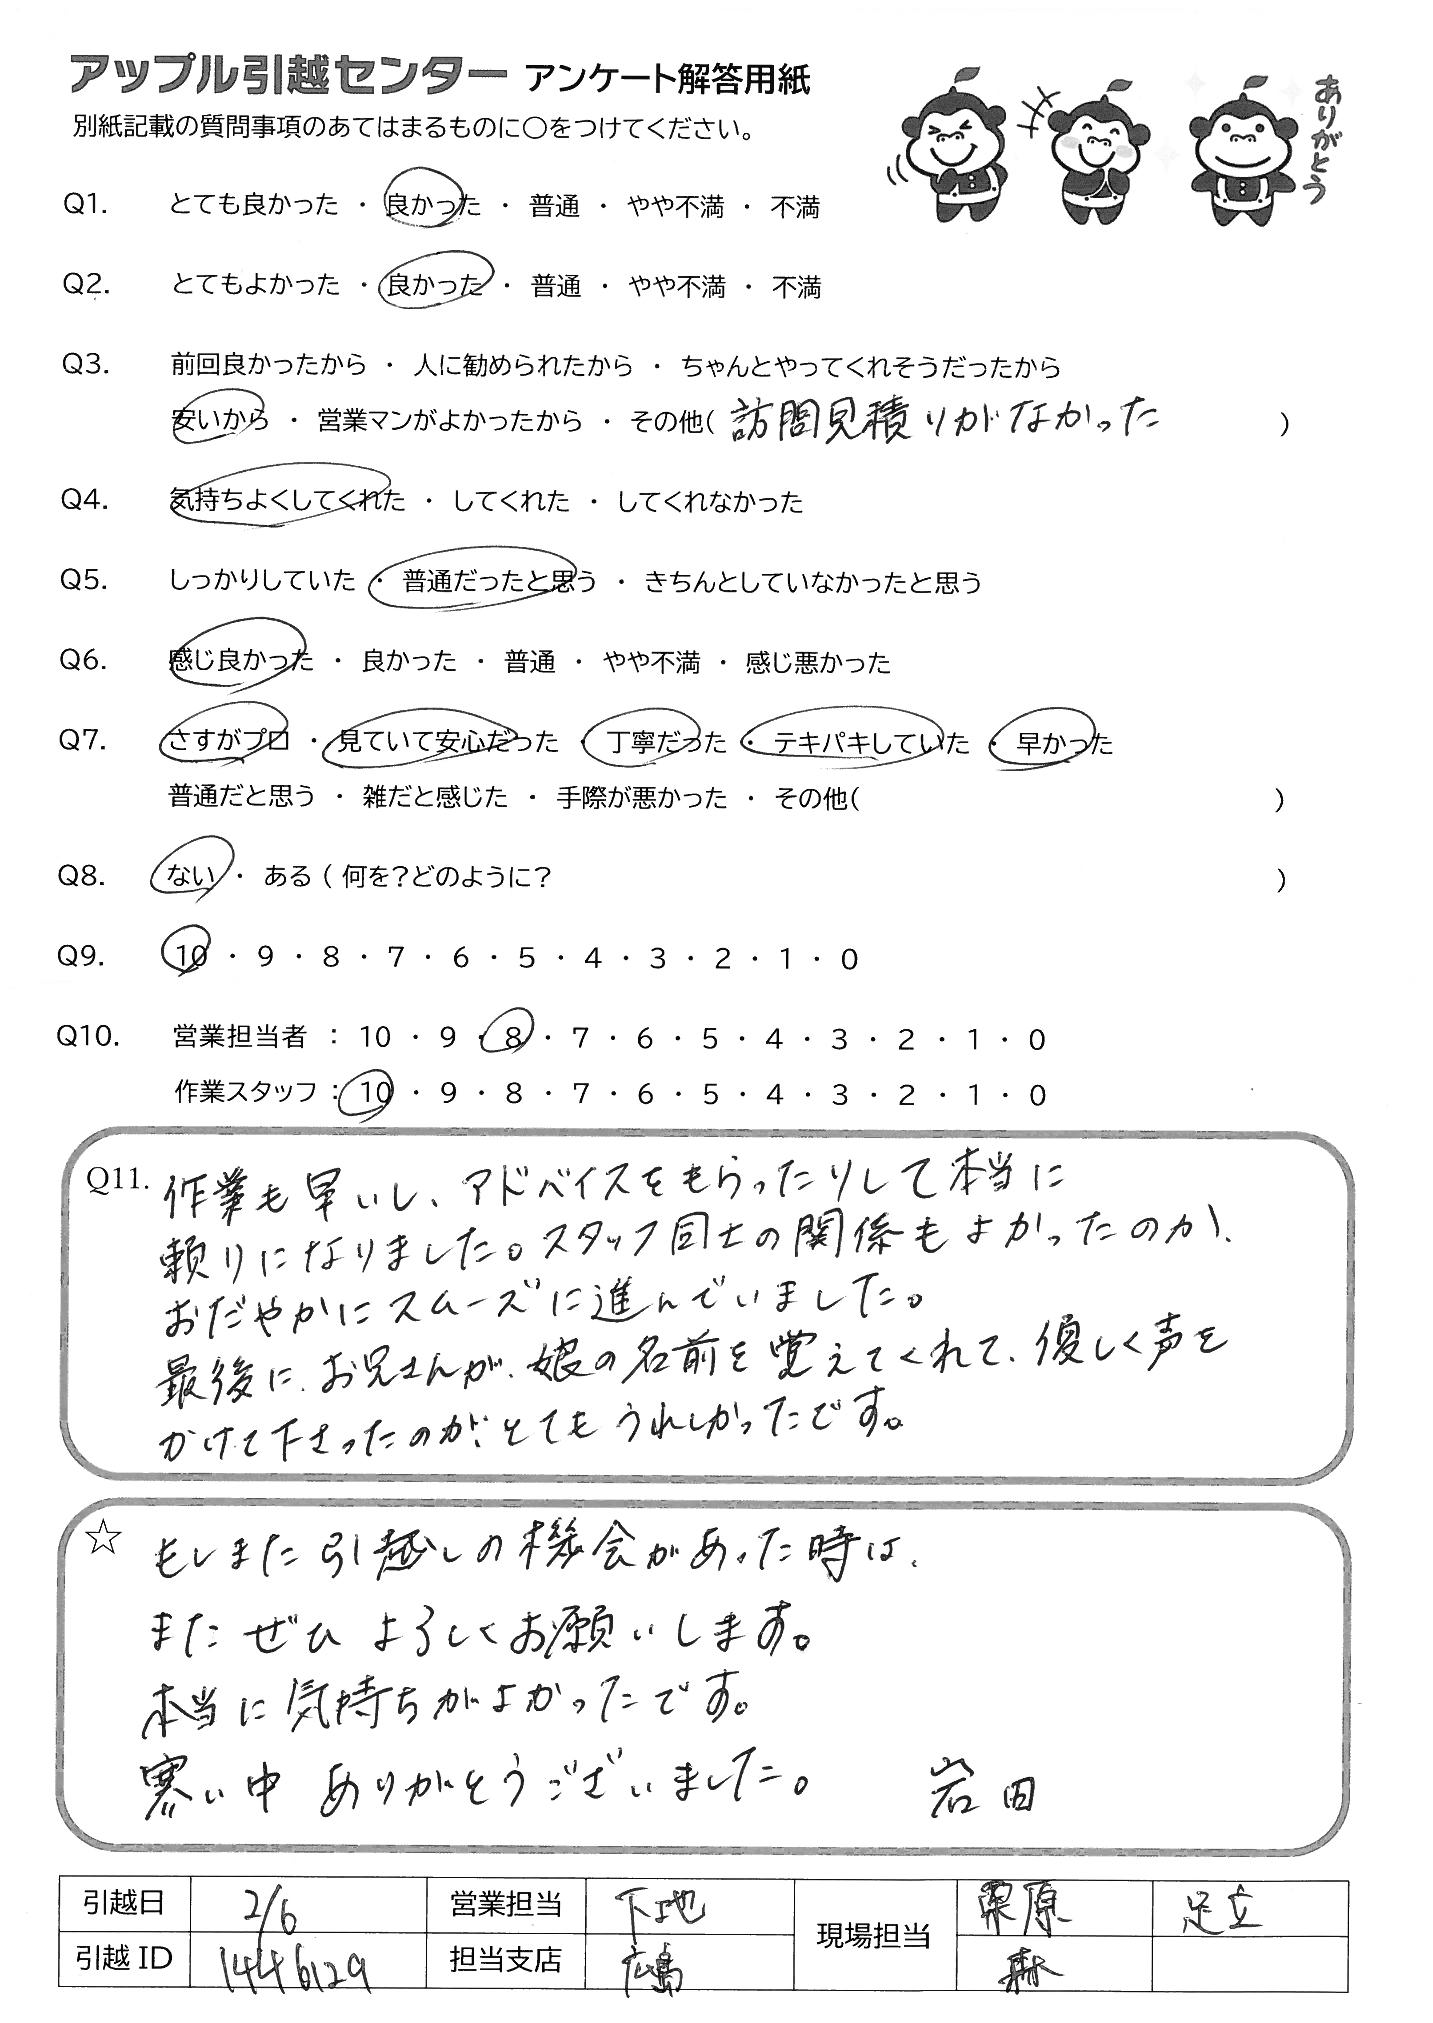 アップル引越センター アンケート解答用紙
別紙記載の質問事項のあてはまるものに○をつけてください。
ありがとう
Q1. とても良かった ・ 良かった ・ 普通 ・ やや不満 ・ 不満
Q2. とてもよかった ・ 良かった ・ 普通 ・ やや不満 ・ 不満
Q3. 前回良かったから ・ 人に勧められたから ・ ちゃんとやってくれそうだったから
安いから ・ 営業マンがよかったから ・ その他( 訪問見積りがなかった )
Q4. 気持ちよくしてくれた ・ してくれた ・ してくれなかった
Q5. しっかりしていた ・ 普通だったと思う ・ きちんとしていなかったと思う
Q6. 感じ良かった ・ 良かった ・ 普通 ・ やや不満 ・ 感じ悪かった
Q7. さすがプロ ・ 見ていて安心だった ・ 丁寧だった ・ テキパキしていた ・ 早かった
普通だと思う ・ 雑だと感じた ・ 手際が悪かった ・ その他( )
Q8. ない ・ ある ( 何を?どのように? )
Q9. 10 ・ 9 ・ 8 ・ 7 ・ 6 ・ 5 ・ 4 ・ 3 ・ 2 ・ 1 ・ 0
Q10. 営業担当者 : 10 ・ 9 ・ 8 ・ 7 ・ 6 ・ 5 ・ 4 ・ 3 ・ 2 ・ 1 ・ 0
作業スタッフ : 10 ・ 9 ・ 8 ・ 7 ・ 6 ・ 5 ・ 4 ・ 3 ・ 2 ・ 1 ・ 0
Q11. 作業も早いし、アドバイスをもらったりして本当に
頼りになりました。スタッフ同士の関係もよかったのか、
おだやかにスムーズに進んでいました。
最後に、お兄さんが、娘の名前を覚えてくれて、優しく声を
かけて下さったのが、とてもうれしかったです。
☆ もしまた引越しの機会があった時は、
またぜひよろしくお願いします。
本当に気持ちがよかったです。
寒い中 ありがとうございました。 岩田
引越日 2/6 営業担当 下地 現場担当 栗原 足立
引越ID 1446129 担当支店 広島 森